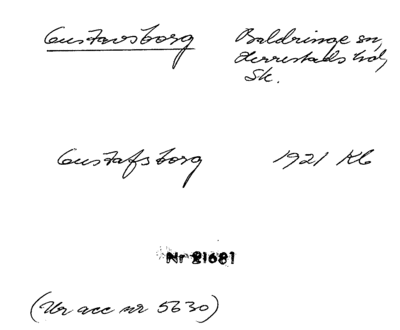 Gustavsborg Baldringe sn,
Herrestads hd,
Sk.
Gustafsborg 1921 Kb
Nr 21681
(Ur acc nr 5630)